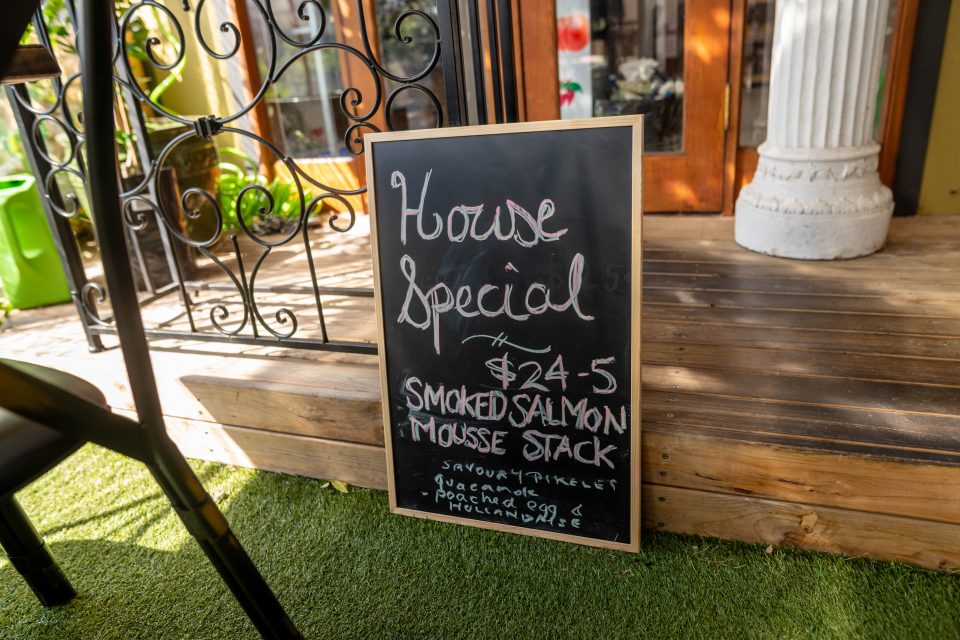 House
Special
$24-5
SMOKED SALMON
MOUSSE STACK
SAVOURY PIKELET
guacamole
- poached egg &
HOLLANDAISE